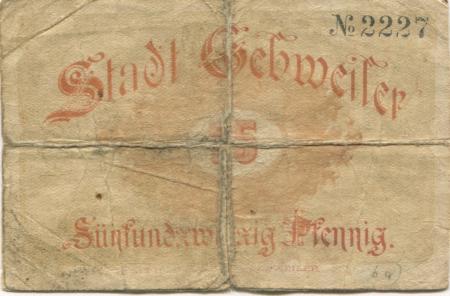 № 2227
Stadt Gebweiler
25
Fünfundzwanzig Pfennig.
6 a